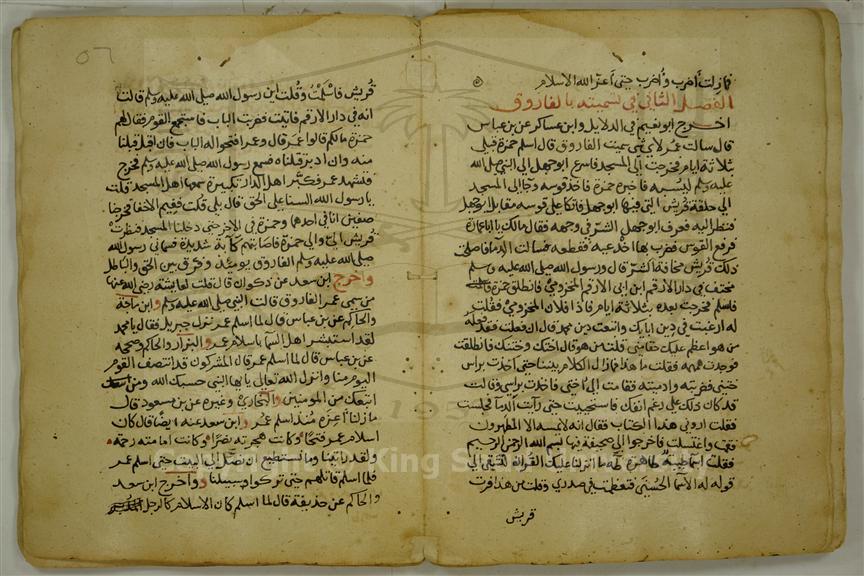 فمازلت أضرب وأُضرب حتى أعز الله الاسلام
الفصل الثاني في تسميته بالفاروق
أخرج ابو نعيم في الدلايل وابن عساكر عن بن عباس
قال سالت عمر لاي شي سميت الفاروق قال اسلم حمزة قبلي
بثلاثة ايام فخرجت الى المسجد فاسرع ابو جهل الى النبي صلى الله
عليه وسلم ليسبه فاخبر حمزة فاخذ قوسه وجا الى المسجد
الى حلقة قريش التي فيها ابو جهل فاتكا على قوسه مقابل ابو جهل
فنظر اليه فعرف ابو جهل الشر في وجهه فقال مالك يا ابا عمارة
فرفع القوس فضرب بها اخدعيه فقطعه فسالت الدما فاصلحت
ذلك قريش مخافة الشر قال ورسول الله صلى الله عليه وسلم
مختف في دار الارقم ابن ابي الارقم المخزومي فانطلق حمزة
فاسلم فخرجت بعده بثلاثة ايام فاذا فلان المخزومي فقلت
له ارغبت في دين ابايك واتبعت دين محمد قال ان فعلت فقد فعله
من هو اعظم عليك حقا مني قلت من هو قال اختك وختنك فانطلقت
فوجدت همهمة فقلت ما هذا فمازال الكلام بيننا حتى اخذت براس
ختني فضربته وادميته فقامت الى اختي فاخذت براسي وقالت
قد كان ذلك على رغم انفك فاستحييت حتى رأيت الدما فجلست
فقلت اروني هذا الكتاب فقالت انه لا يمسه الا المطهرون
فقمت واغتسلت فاخرجوا الي صحيفة فيها بسم الله الرحمن الرحيم
فقلت اسما طيبة طاهرة طه ما انزلنا عليك القران لتشقى الى
قوله له الاسما الحسنى فتعظمت في صدري وقلت من هذا فرت
قريش
٥٦
قريش فاسلمت وقلت اين رسول الله صلى الله عليه وسلم قالت
انه في دار الارقم فاتيت فضربت الباب فاستجمع القوم فقال لهم
حمزة مالكم قالوا عمر قال وعمر افتحوا له الباب فان اقبل قبلنا
منه وان ادبر قتلناه فسمع رسول الله صلى الله عليه وسلم فخرج
فتشهد عمر فكبر اهل الدار تكبيرة سمعها اهل المسجد قلت
يا رسول الله السنا على الحق قال بلى قلت ففيم الاخفا فخرجنا
صفين انا في احدهما وحمزة في الاخر حتى دخلنا المسجد فنظرت
قريش الي والى حمزة فاصابتهم كابة شديدة فسماني رسول الله
صلى الله عليه وسلم الفاروق يوميذ وفرق بين الحق والباطل
واخرج ابن سعد عن ذكوان قال قلت لعايشة رضي الله عنها
من سمى عمر الفاروق قالت النبي صلى الله عليه وسلم وابن ماجة
والحاكم عن بن عباس قال لما اسلم عمر نزل جبريل فقال يا محمد
لقد استبشر اهل السما باسلام عمر والبزار والحاكم وصححه
عن بن عباس قال لما اسلم عمر قال المشركون قد انتصف القوم
اليوم منا وانزل الله تعالى يا ايها النبي حسبك الله ومن
اتبعك من المومنين والبخاري وغيره عن بن مسعود قال
ما زلنا اعزة منذ اسلم عمر وابن سعد عنه ايضا قال كان
اسلام عمر فتحا وكانت هجرته نصرا وكانت امامته رحمة
ولقد رايتنا وما نستطيع ان نصلي الى البيت حتى اسلم عمر
فلما اسلم قاتلهم حتى تركوا وسبيلنا واخرج ابن سعد
والحاكم عن حذيفة قال لما اسلم عمر كان الاسلام كالرجل
King S
195